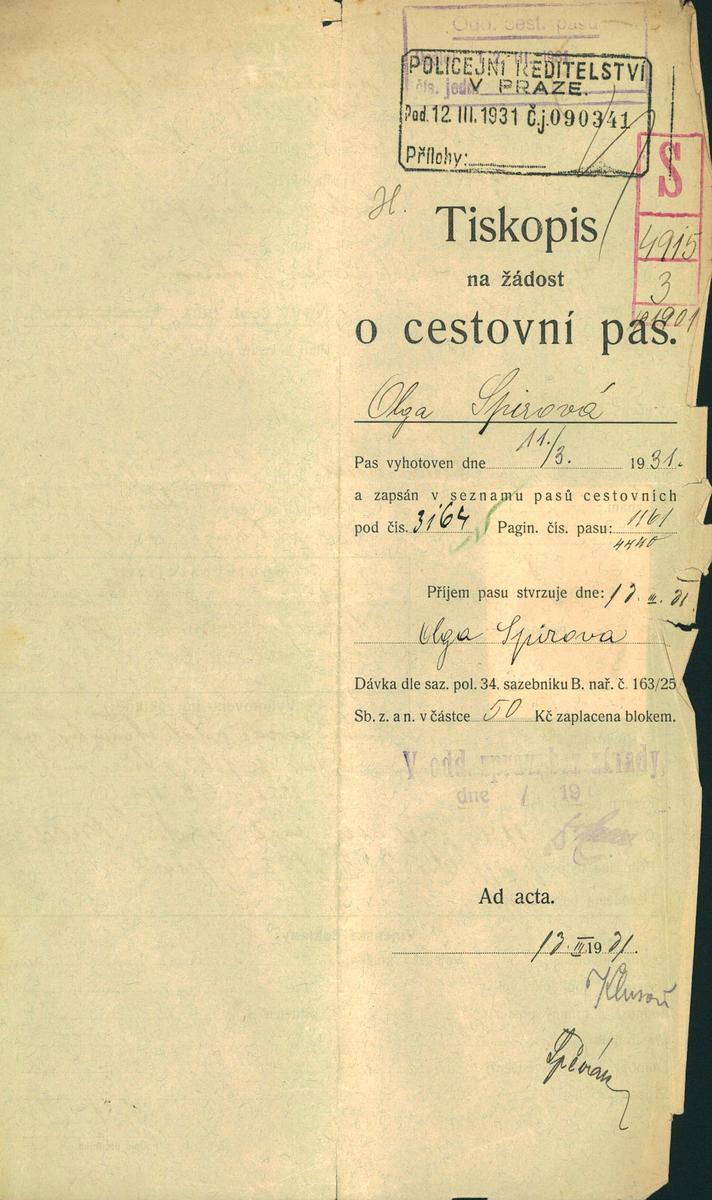 Odd. cest. pasů
čís. jedn.
POLICEJNÍ ŘEDITELSTVÍ
V PRAZE.
Pod. 12. III. 1931 Č.j. 090341
Přílohy:
S
4915
3
H.
Tiskopis
na žádost
o cestovní pas.
Olga Spirová
Pas vyhotoven dne 11./3. 1931.
a zapsán v seznamu pasů cestovních
pod čís. 3164 Pagin. čís. pasu: 1161
4440
Příjem pasu stvrzuje dne: 12. III. 31
Olga Spirova
Dávka dle saz. pol. 34. sazebníku B. nař. č. 163/25
Sb. z. a n. v částce 50 Kč zaplacena blokem.
dne / 19
Ad acta.
12. III 1931.